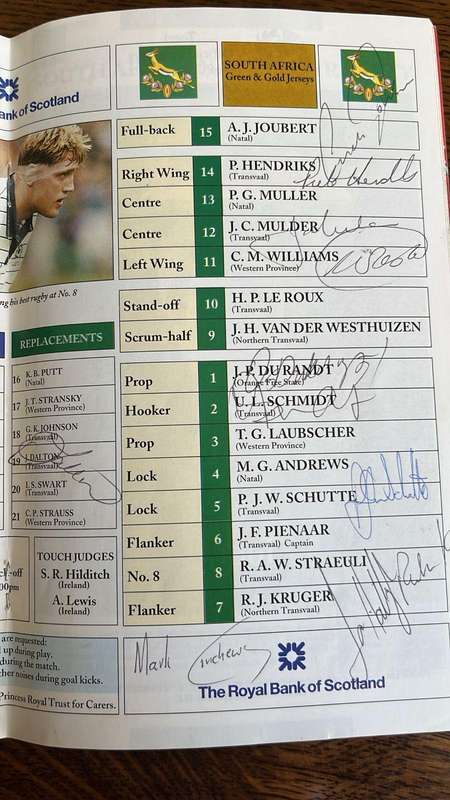 ank of Scotland
ng his best rugby at No. 8
REPLACEMENTS
16 K. B. PUTT
(Natal)
17 J. T. STRANSKY
(Western Province)
18 G. K. JOHNSON
(Transvaal)
19 J. DALTON
(Transvaal)
20 I. S. SWART
(Transvaal)
21 C. P. STRAUSS
(Western Province)
-off
00pm
TOUCH JUDGES
S. R. Hilditch
(Ireland)
A. Lewis
(Ireland)
are requested:
up during play.
during the match.
her noises during goal kicks.
Princess Royal Trust for Carers.
SOUTH AFRICA
Green & Gold Jerseys
Full-back 15 A. J. JOUBERT
(Natal)
Right Wing 14 P. HENDRIKS
(Transvaal)
Centre 13 P. G. MULLER
(Natal)
Centre 12 J. C. MULDER
(Transvaal)
Left Wing 11 C. M. WILLIAMS
(Western Province)
Stand-off 10 H. P. LE ROUX
(Transvaal)
Scrum-half 9 J. H. VAN DER WESTHUIZEN
(Northern Transvaal)
Prop 1 J. P. DU RANDT
(Orange Free State)
Hooker 2 U. L. SCHMIDT
(Transvaal)
Prop 3 T. G. LAUBSCHER
(Western Province)
Lock 4 M. G. ANDREWS
(Natal)
Lock 5 P. J. W. SCHUTTE
(Transvaal)
Flanker 6 J. F. PIENAAR
(Transvaal) Captain
No. 8 8 R. A. W. STRAEULI
(Transvaal)
Flanker 7 R. J. KRUGER
(Northern Transvaal)
Mark Andrews
The Royal Bank of Scotland